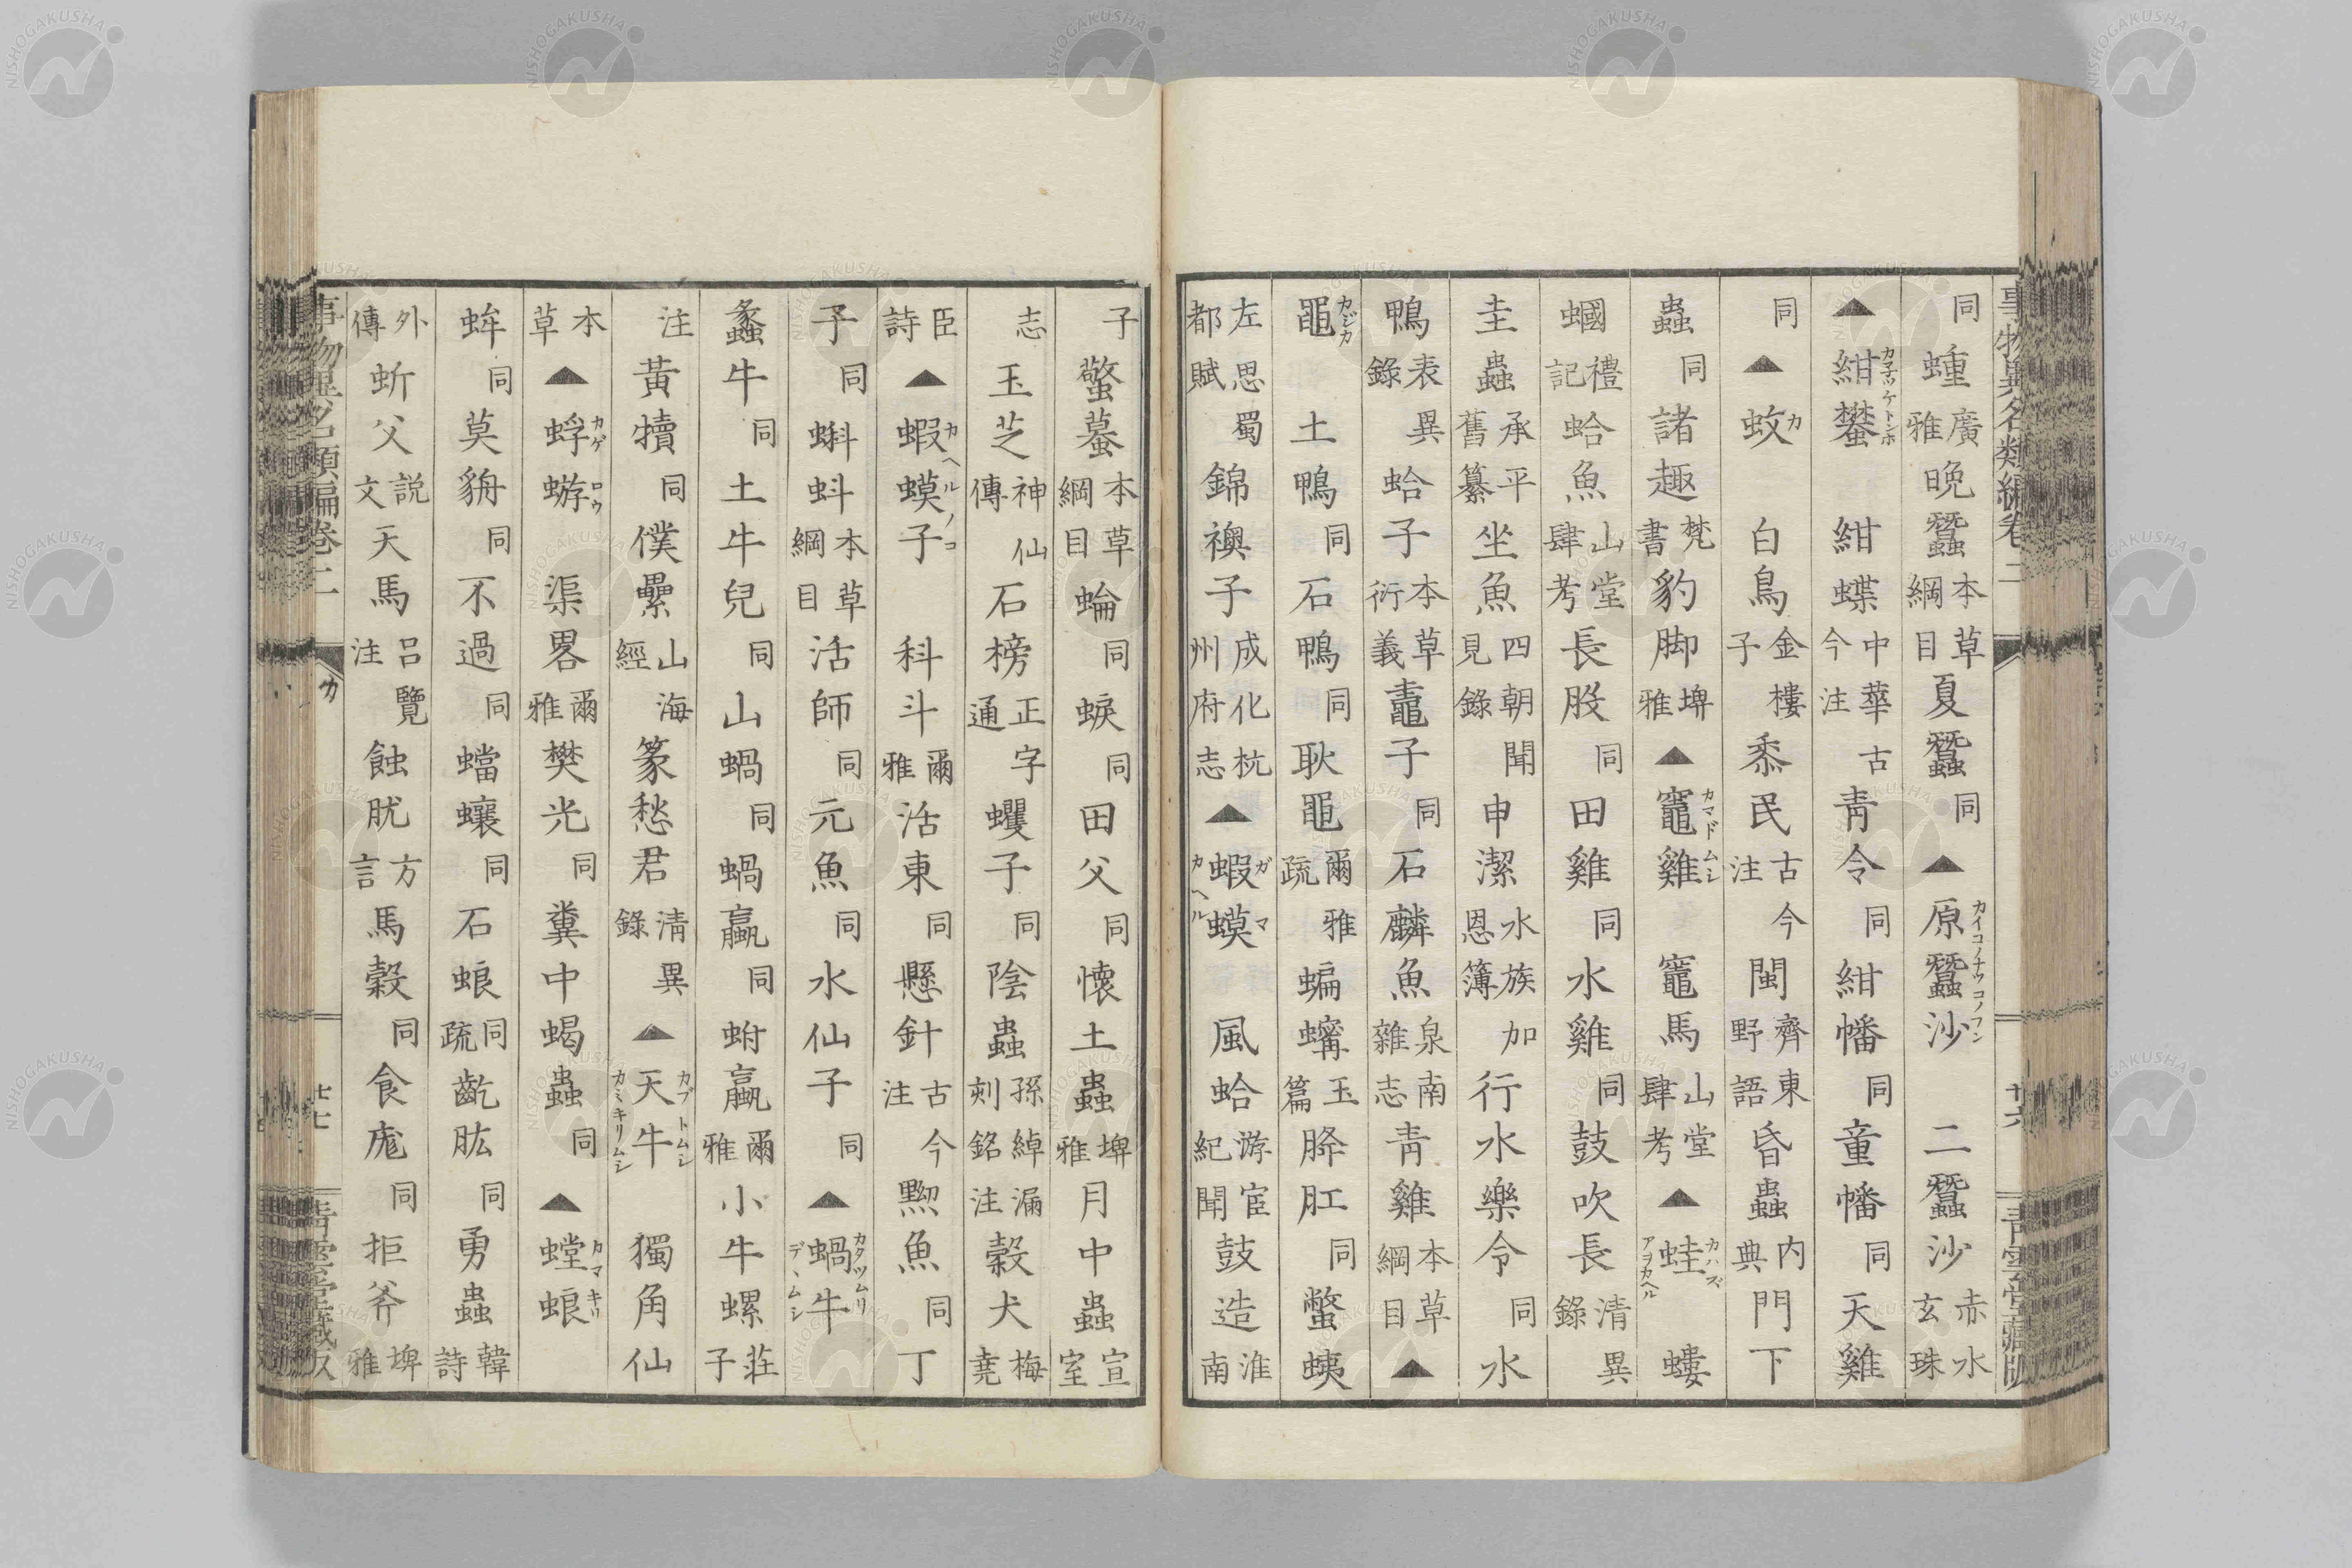 事物異名類編卷二 廿六 青雲堂藏版
同蝩廣雅晚蠶本草綱目夏蠶同▲原蠶沙カイコノナツコノフン二蠶沙赤水玄珠
▲紺蠜カネツケトンボ紺蝶中華古今注青令同紺幡同童幡同天雞
同▲蚊カ白鳥金樓子黍民古今注閩齊東野語昏蟲内典門下
蟲同諸趣梵書豹脚埤雅▲竈雞カマドムシ竈馬山堂肆考▲蛙カハズアヲカヘル螻
蟈禮記蛤魚山堂肆考長股同田雞同水雞同鼓吹長清異錄
圭蟲承平舊纂坐魚四朝聞見錄申潔水族加恩簿行水樂令同水
鴨表異錄蛤子本草衍義鼃子同石麟魚泉南雜志青雞本草綱目▲
黽カジカ土鴨同石鴨同耿黽爾雅疏蝙䗿玉篇胮肛同蟞蛦
左思蜀都賦錦襖子成化杭州府志▲蝦蟆ガマカヘル風蛤游宦紀聞鼓造淮南
子蟼蟇本草綱目蜦同蜧同田父同懷土蟲埤雅月中蟲宣室
志玉芝神仙傳石榜正字通蠷子同陰蟲孫綽漏刻銘注穀犬梅堯
臣詩▲蝦蟆子カヘルノコ科斗爾雅活東同懸針古今注魚同丁
子同蝌蚪本草綱目活師同元魚同水仙子同▲蝸牛カタツムリデヽムシ
蠡牛同土牛兒同山蝸同蝸蠃同蚹蠃爾雅小牛螺莊子
注黃犢同僕纍山海經篆愁君清異錄▲天牛カブトムシカミキリムシ獨角仙
本草▲蜉蝣カゲロウ渠畧爾雅樊光同糞中蝎蟲同▲螳蜋カマキリ
蛑同莫貈同不過同蟷蠰同石蜋同疏齕肱同勇蟲韓詩
外傳蚚父説文天馬呂覽注蝕肬方言馬穀同食庬同拒斧埤雅
事物異名類編卷二 カ 廿七 青雲堂藏版
NISHOGAKUSHA